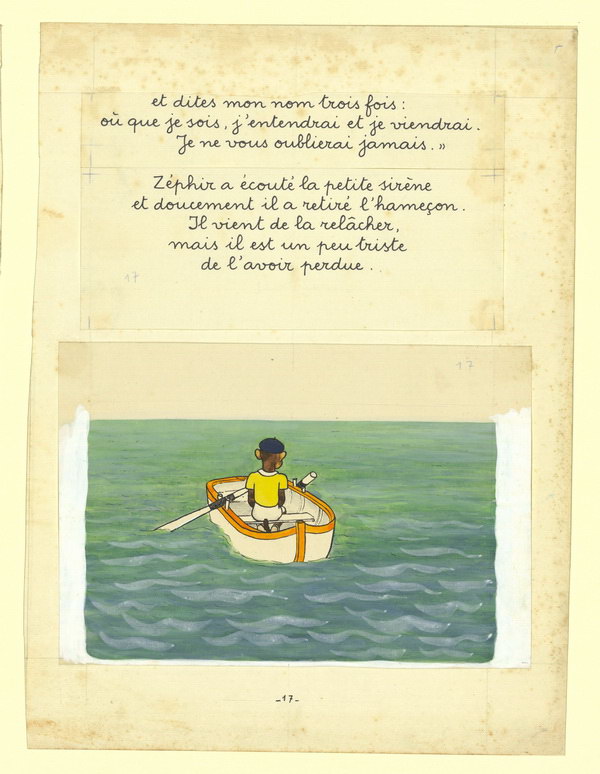 et dites mon nom trois fois :
où que je sois, j'entendrai et je viendrai.
Je ne vous oublierai jamais. »
Zéphir a écouté la petite sirène
et doucement il a retiré l'hameçon.
Il vient de la relâcher,
mais il est un peu triste
de l'avoir perdue.
17
17
-17-